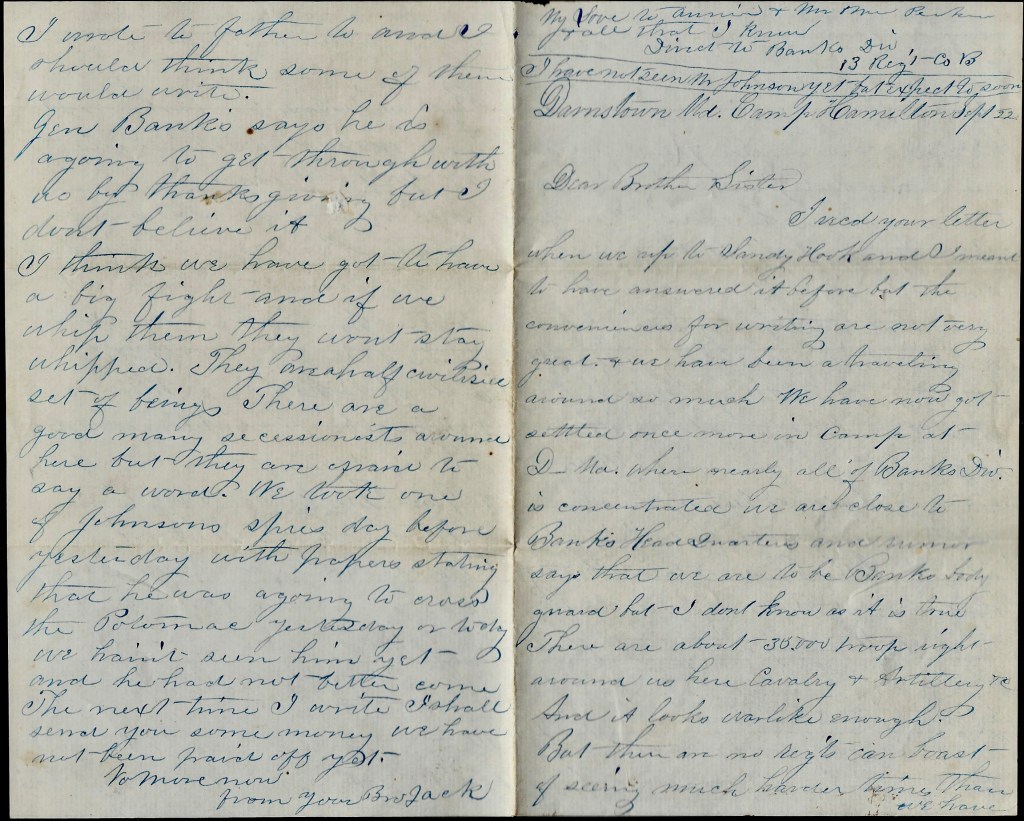 My love to Annie & Mr Mrs Parker
& all that I know
Direct to Banks Div
13 Reg't - Co B
I have not seen Mr Johnson yet but expect to soon
Darnstown Md. Camp Hamilton Sept 22
Dear Brother Sister
I recd your letter
when we up to Sandy Hook and I meant
to have answered it before but the
conveniences for writing are not very
great. & we have been a traveling
around so much We have now got
settled once more in Camp at
D- Md. where nearly all of Banks Div.
is concentrated we are close to
Banks Head Quarters and rumor
says that we are to be Banks body
guard but I dont know as it is true
There are about 35000 troop right
around us here Cavalry & Artillery &c
And it looks warlike enough.
But there are no regts can boast
of seeing much harder times than
we have
I wrote to father to and I
should think some of them
would write.
Gen Banks says he is
agoing to get through with
us by thanksgiving but I
dont believe it
I think we have got to have
a big fight and if we
whip them they wont stay
whipped. They are a half civilised
set of beings There are a
good many secessionists around
here but they are afraid to
say a word. We took one
of Johnsons spies day before
yesterday with papers stating
that he was agoing to cross
the Potomac yesterday or today
we haint seen him yet
and he had not better come
The next time I write I shall
send you some money we have
not been paid off yet.
No more now
from your Bro Jack